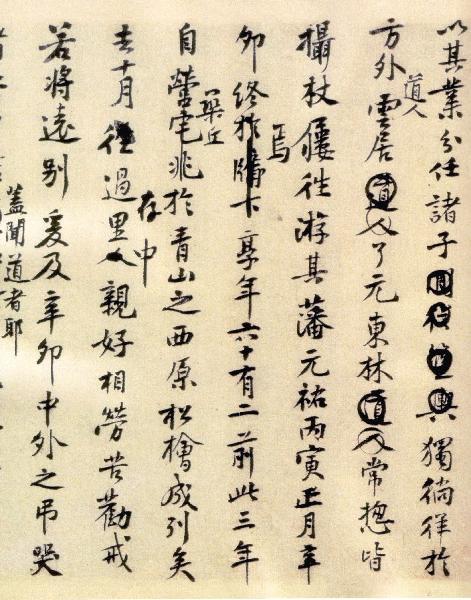 以其業分任諸子獨徜徉於
道人
方外雲居道人了元東林道人常揔皆
攝杖屨往游其藩元祐丙寅正月辛
焉
卯終於牖下享年六十有二前此三年
築丘
自營宅兆於青山之西原松檜成列矣
存中
去十月往過里人親好相勞苦勸戒
若將遠別爰及辛卯中外之弔哭
蓋聞道者耶